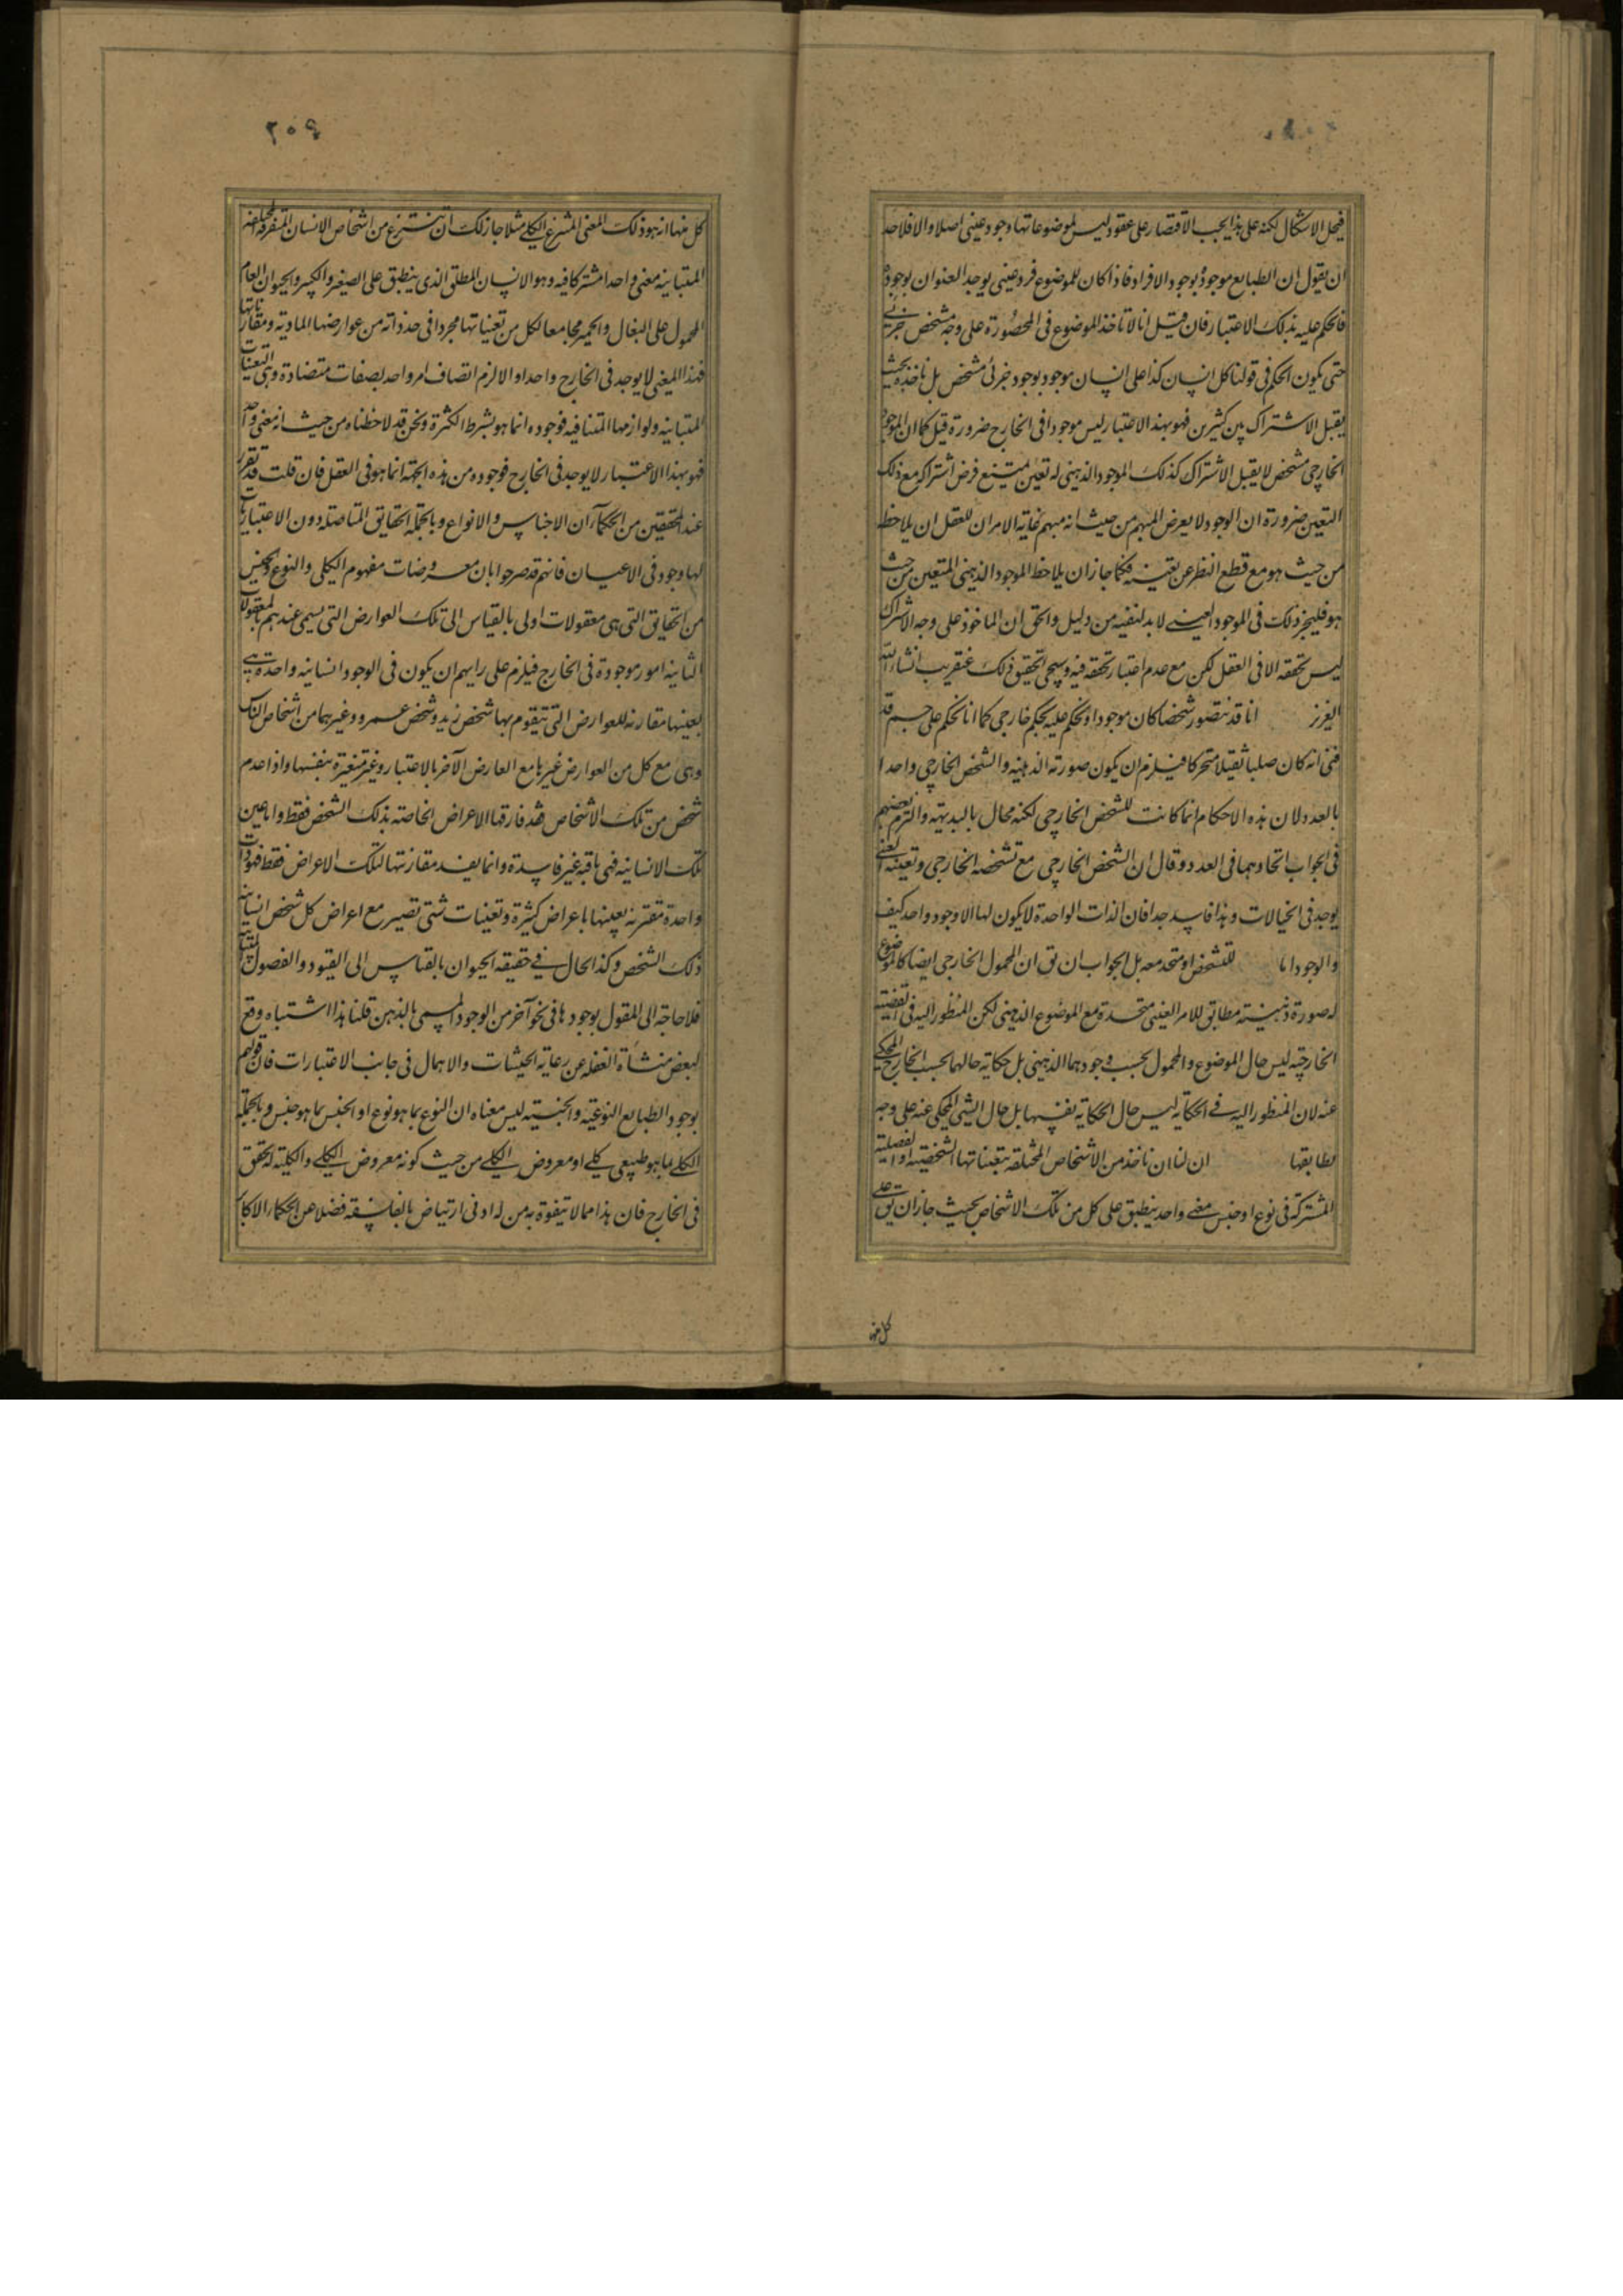 فيحل الاشكال لكنه على هذا يجب الاقتصار على عقود ليس لموضوعاتها وجود عينى اصلا والا فلاحد
ان يقول ان الطبايع موجودة بوجود الافراد فاذا كان للموضوع فرد عينى يوجد العنوان بوجوده
فالحكم عليه بذلك الاعتبار فان قيل انا لا ناخذ الموضوع فى المحصورة على وجه مشخص جزئى
حتى يكون الحكم فى قولنا كل انسان كذا على انسان موجود بوجود جزئى مشخص بل ناخذه بحيث
يقبل الاشتراك بين كثيرين فهو بهذا الاعتبار ليس موجودا فى الخارج ضرورة قيل كما ان الموجود
الخارجى مشخص لا يقبل الاشتراك كذلك الموجود الذهنى له تعين يمتنع فرض اشتراكه مع ذلك
التعين ضرورة ان الوجود لا يعرض المبهم من حيث انه مبهم غاية الامر ان للعقل ان يلاحظه
من حيث هو مع قطع النظر عن تعينه فكما جاز ان يلاحظ الموجود الذهنى المتعين من حيث
هو فليجز ذلك فى الموجود العينى لا بد لنفيه من دليل والحق ان الماخوذ على وجه الاشتراك
ليس تحققه الا فى العقل لكن مع عدم اعتبار تحققه فيه وسيجى تحقيق ذلك عنقريب انشاء الله
العزيز انا قد نتصور شخصا كان موجودا ونحكم عليه بحكم خارجى كما انا نحكم على جسم قد
فنى انه كان صلبا ثقيلا متحركا فيلزم ان يكون صورته الذهنية والشخص الخارجى واحدا
بالعدد لان هذه الاحكام انما كانت للشخص الخارجى لكنه محال بالبديهة والتزم بعضهم
فى الجواب اتحادهما فى العدد وقال ان الشخص الخارجى مع تشخصه الخارجى وتعينه العينى
يوجد فى الخيالات وهذا فاسد جدا فان الذات الواحدة لا يكون لها الا وجود واحد كيف
والوجود اما للتشخص او متحد معه بل الجواب ان يق ان المحمول الخارجى ايضا كالموضوع
له صورة ذهنية مطابق للامر العينى متحدة مع الموضوع الذهنى لكن المنظور اليه فى القضية
الخارجية ليس حال الموضوع والمحمول بحسب وجودهما الذهنى بل حكاية حالهما بحسب الخارج المحكى
عنه لان المنظور اليه فى الحكاية ليس حال الحكاية نفسها بل حال الشى المحكى عنه على وجه
يطابقها ان لنا ان ناخذ من الاشخاص المختلفة بتعيناتها الشخصية او الفصلية
المشتركة فى نوع او جنس معنى واحد ينطبق على كل من تلك الاشخاص بحيث جاز ان يق على
كل منها
كل منها انه هو ذلك المعنى المنتزع الكلى مثلا جاز لك ان تنتزع من اشخاص الانسان المتفرقة المختلفة
المتباينة معنى واحدا مشتركا فيه وهو الانسان المطلق الذى ينطبق على الصغير والكبير والحيوان العام
المحمول على البغال والحمير مجامعا لكل من تعيناتها مجردا فى حد ذاته من عوارضها المادية ومقارناتها
فهذا المعنى لا يوجد فى الخارج واحدا والا لزم اتصاف امر واحد بصفات متضادة وهى التعينات
المتباينة ولوازمها المتنافية فوجوده انما هو بشرط الكثرة ونحن قد لاحظناه من حيث انه معنى واحد
فهو بهذا الاعتبار لا يوجد فى الخارج فوجوده من هذه الجهة انما هو فى العقل فان قلت قد تقرر
عند المحققين من الحكمآء ان الاجناس والانواع وبالجملة الحقايق المتاصلة دون الاعتباريات
لها وجود فى الاعيان فانهم قد صرحوا بان معروضات مفهوم الكلى والنوع والجنس
من الحقايق التى هى معقولات اولى بالقياس الى تلك العوارض التى يسمى عندهم بالمعقولات
الثانية امور موجودة فى الخارج فيلزم على رايهم ان يكون فى الوجود انسانية واحدة هى
بعينها مقارنة للعوارض التى يتقوم بها شخص زيد وشخص عمرو وغيرهما من اشخاص الناس
وهى مع كل من العوارض غيرها مع العارض الآخر بالاعتبار وغير متغيرة بنفسها واذا عدم
شخص من تلك الاشخاص فقد فارقها الاعراض الخاصة بذلك الشخص فقط واما عين
تلك الانسانية فهى باقية غير فاسدة وانما يفسد مقارنتها لتلك الاعراض فقط فهو ذات
واحدة مقترنة بعينها باعراض كثيرة وتعينات شتى تصير مع اعراض كل شخص انسانية
ذلك الشخص وكذا الحال فى حقيقة الحيوان بالقياس الى القيود والفصول
فلا حاجة الى القول بوجودها فى نحو آخر من الوجود المسمى بالذهن قلنا هذا اشتباه وقع
لبعض منشأه الغفلة عن رعاية الحيثيات والاهمال فى جانب الاعتبارات فان قولهم
بوجود الطبايع النوعية والجنسية ليس معناه ان النوع بما هو نوع او الجنس بما هو جنس وبالجملة
الكلى بما هو طبيعى كلى او معروض الكلى من حيث كونه معروض الكلى والكلية له تحقق
فى الخارج فان هذا مما لا يتفوه به من له ادنى ارتياض بالفلسفة فضلا عن الحكماء الاكابر